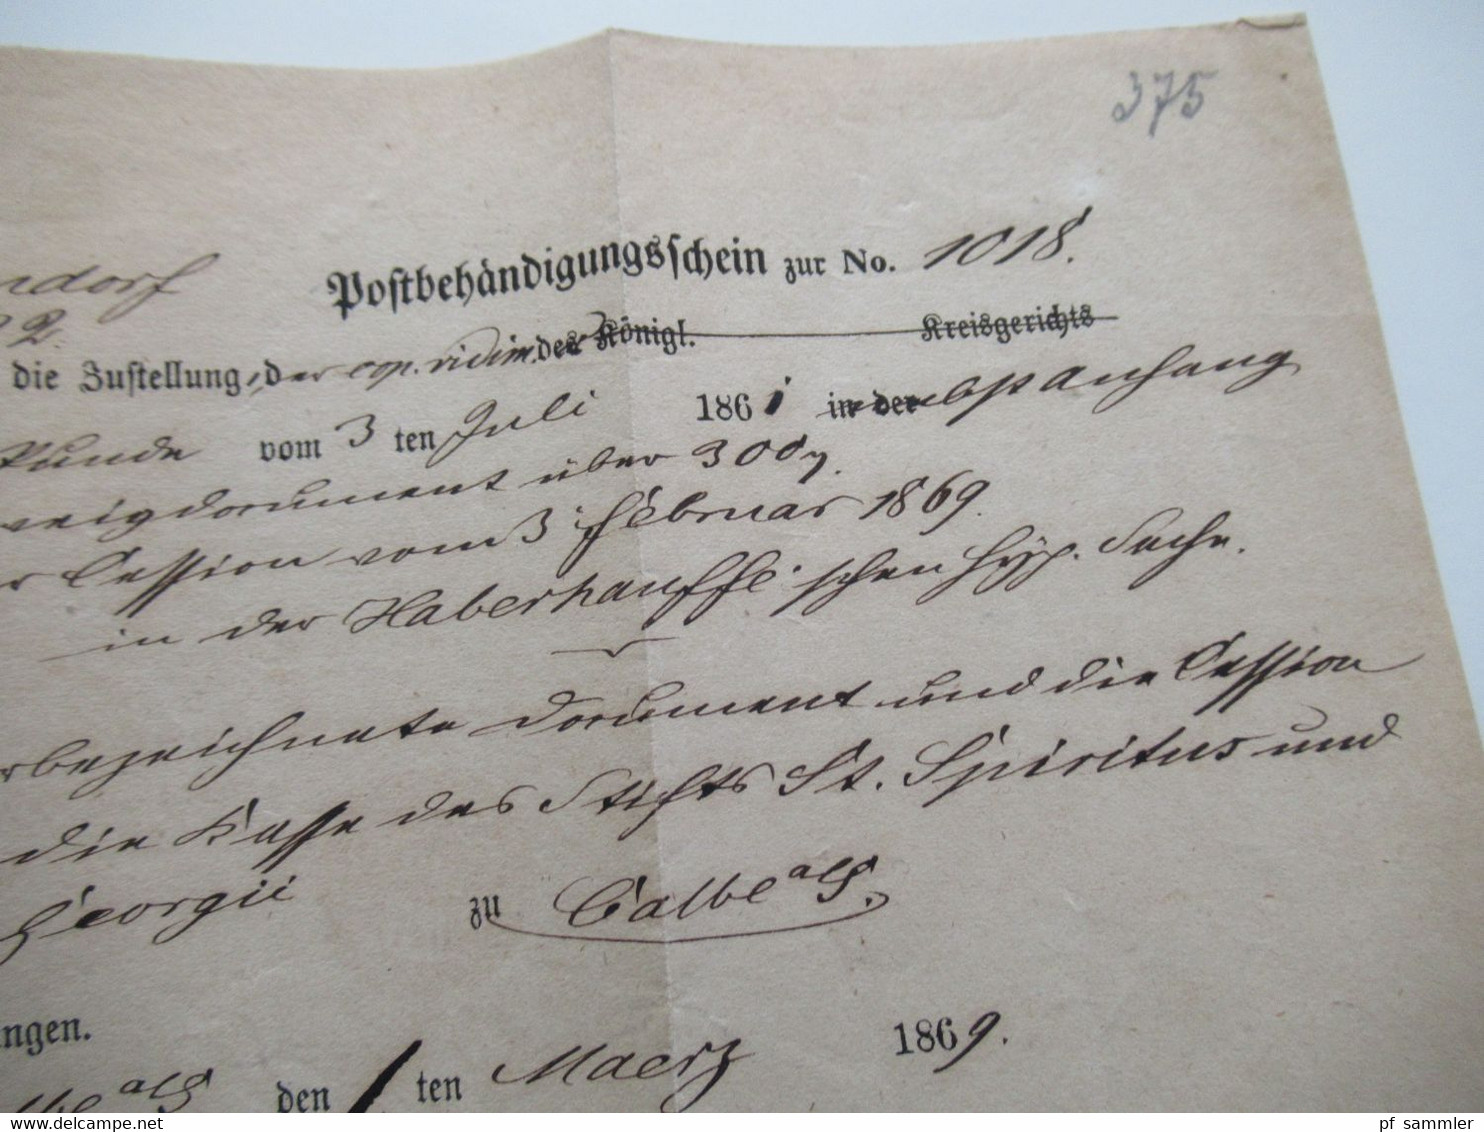 375
ndorf
Postbehändigungsschein zur No. 1018.
22
die Zustellung, der cop. vidim. des Königl. Kreisgerichts
kunde vom 3 ten Juli 1861 in der nebst Anhang
weigdocument über 300
r Cession vom 3 Februar 1869.
in der Haberhauffe'schen Hyp. Sache.
rbezeichnete Document und die Cession
die Kasse des Stifts St. Spiritus und
Georgii zu Calbe a/S.
ungen.
Calbe a/S den 1 ten Maerz 1869.
pf sammler